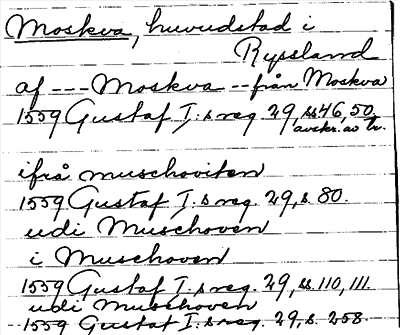 Moskva, huvudstad i
Ryssland
af --- Moskva -- från Moskva
1559 Gustaf I:s reg. 29, ss 46, 50.
avskr. av tr.
ifrå muschoviten
1559 Gustaf I:s reg. 29, s. 80.
udi Muschoven
i Muschoven
1559 Gustaf I:s reg. 29, ss. 110, 111.
udi Muschoven
1559 Gustaf I:s reg. 29, s. 258.